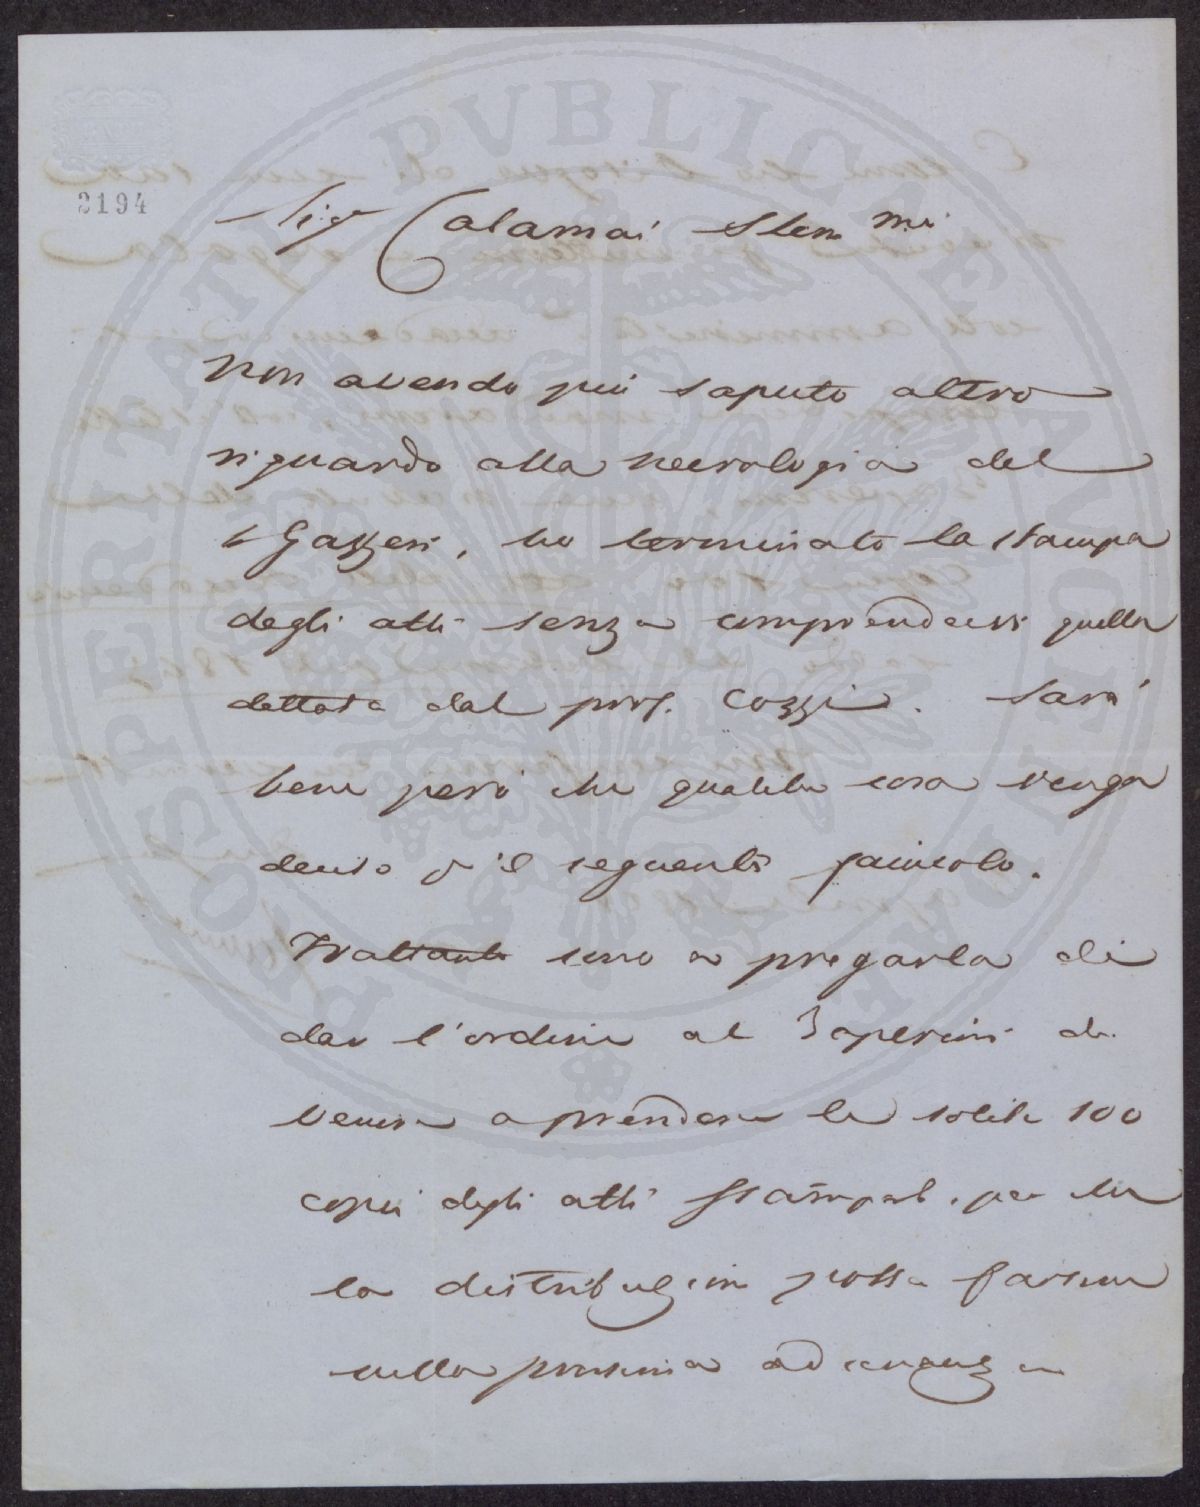 2194
Sigr Calamai Stim mi
Non avendo più saputo altro
riguardo alla necrologia del
Gazzeri, ho terminato la stampa
degli atti senza comprendervi quella
dettata dal prof. Cozzi. Sarà
bene però che qualche cosa venga
deciso p il seguente fascicolo.
Frattanto sono a pregarla di
dar l'ordine al Saperini di
venire a prendere le solite 100
copie degli atti stampati, per che
la distribuzione possa farsene
nella prossima adunanza
PROSPERITATI PVBLICAE AVGENDAE